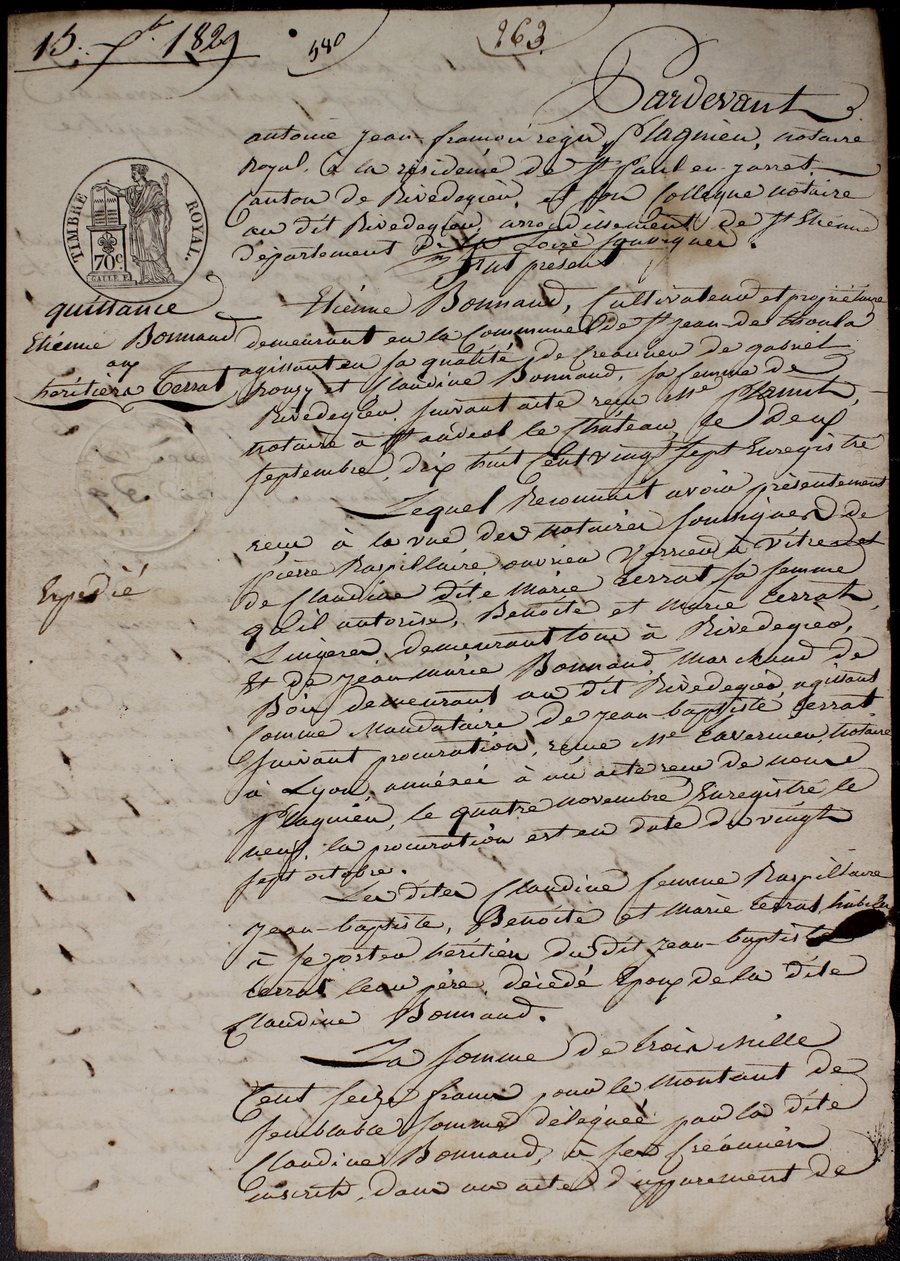 15. 7bre 1829
580
263
Pardevant
antoine jean-francois regis Plagnieu, notaire
Royal, à la résidence de St Paul-en-jarret,
Canton de Rivedegier, et son Collegue notaire
au dit Rivedegier, arrondissement de St Etienne
département de la Loire soussignés.
fut présent
TIMBRE ROYAL.
70c.
quittance
Etienne Bonnand
aux
héritiers Terrat
Expédié
Etienne Bonnand, Cultivateur et propriétaire
demeurant en la Commune de St jean-de-thoula
agissant en sa qualité de créancier de
et Claudine Bonnand, sa femme de
Rivedegier, suivant acte reçu Me
notaire à St andéol le Château, le deux
septembre, dix huit Cent vingt sept Enregistré
Lequel Reconnait avoir présentement
reçu à la vue des notaires soussignés de
Pierre Raspillaire ouvrier Verrier à Vitre et
de Claudine dite Marie terrat sa femme
qu'il autorise, Benoite et Marie terrat,
Lingeres, demeurant tous à Rivedegier,
Et de jean-Marie Bonnand Marchand de
Bois demeurant au dit Rivedegier, agissant
Comme Mandataire de jean-baptiste terrat
suivant procuration, reçue Me tavernier, notaire
à Lyon, annéxée à un acte reçu de nous
Plagnieu, le quatre novembre Enregistré le
neuf, la procuration est en date du vingt
sept octobre.
Les dites Claudine femme Raspillaire
jean-baptiste, Benoite et Marie terrat, habiles
à se porter héritiers du dit jean-baptiste
terrat leur père, décédé Epoux de la dite
Claudine Bonnand.
La somme de trois Mille
Cent seize francs pour le montant de
semblable somme déléguée par la dite
Claudine Bonnand, à ses Créanciers
inscrits, dans un acte d'apparement de